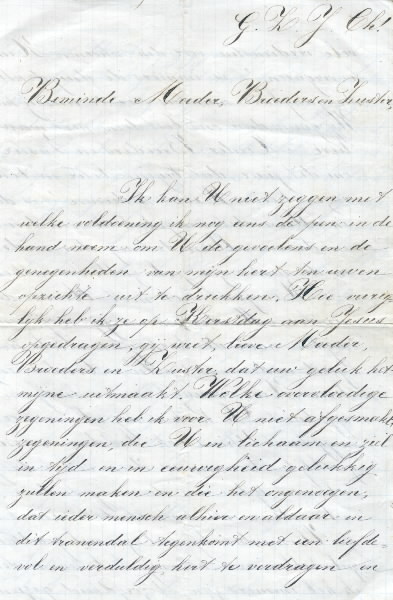 G. Z. J. Ch!
Beminde Moeder, Broeders en Zuster,
Ik kan U niet zeggen met
welke voldoening ik nog eens de pen in de
hand neem om U de gevoelens en de
genegenheden van mijn hert ten uwen
opzichte uit te drukken. Hoe vurig-
lijk heb ik ze op Kerstdag aan Jesus
opgedragen, gij weet, lieve Moeder,
Broeders en Zuster, dat uw geluk het
mijne uitmaakt. Welke overvloedige
zegeningen heb ik voor U niet afgesmekt,
zegeningen, die U en lichaam en ziel
in tijd en in eeuwigheid gelukkig
zullen maken en die het ongenoegen,
dat ieder mensch alhier en aldaar in
dit tranendal tegenkomt met een liefde-
vol en verduldig hert te verdragen en